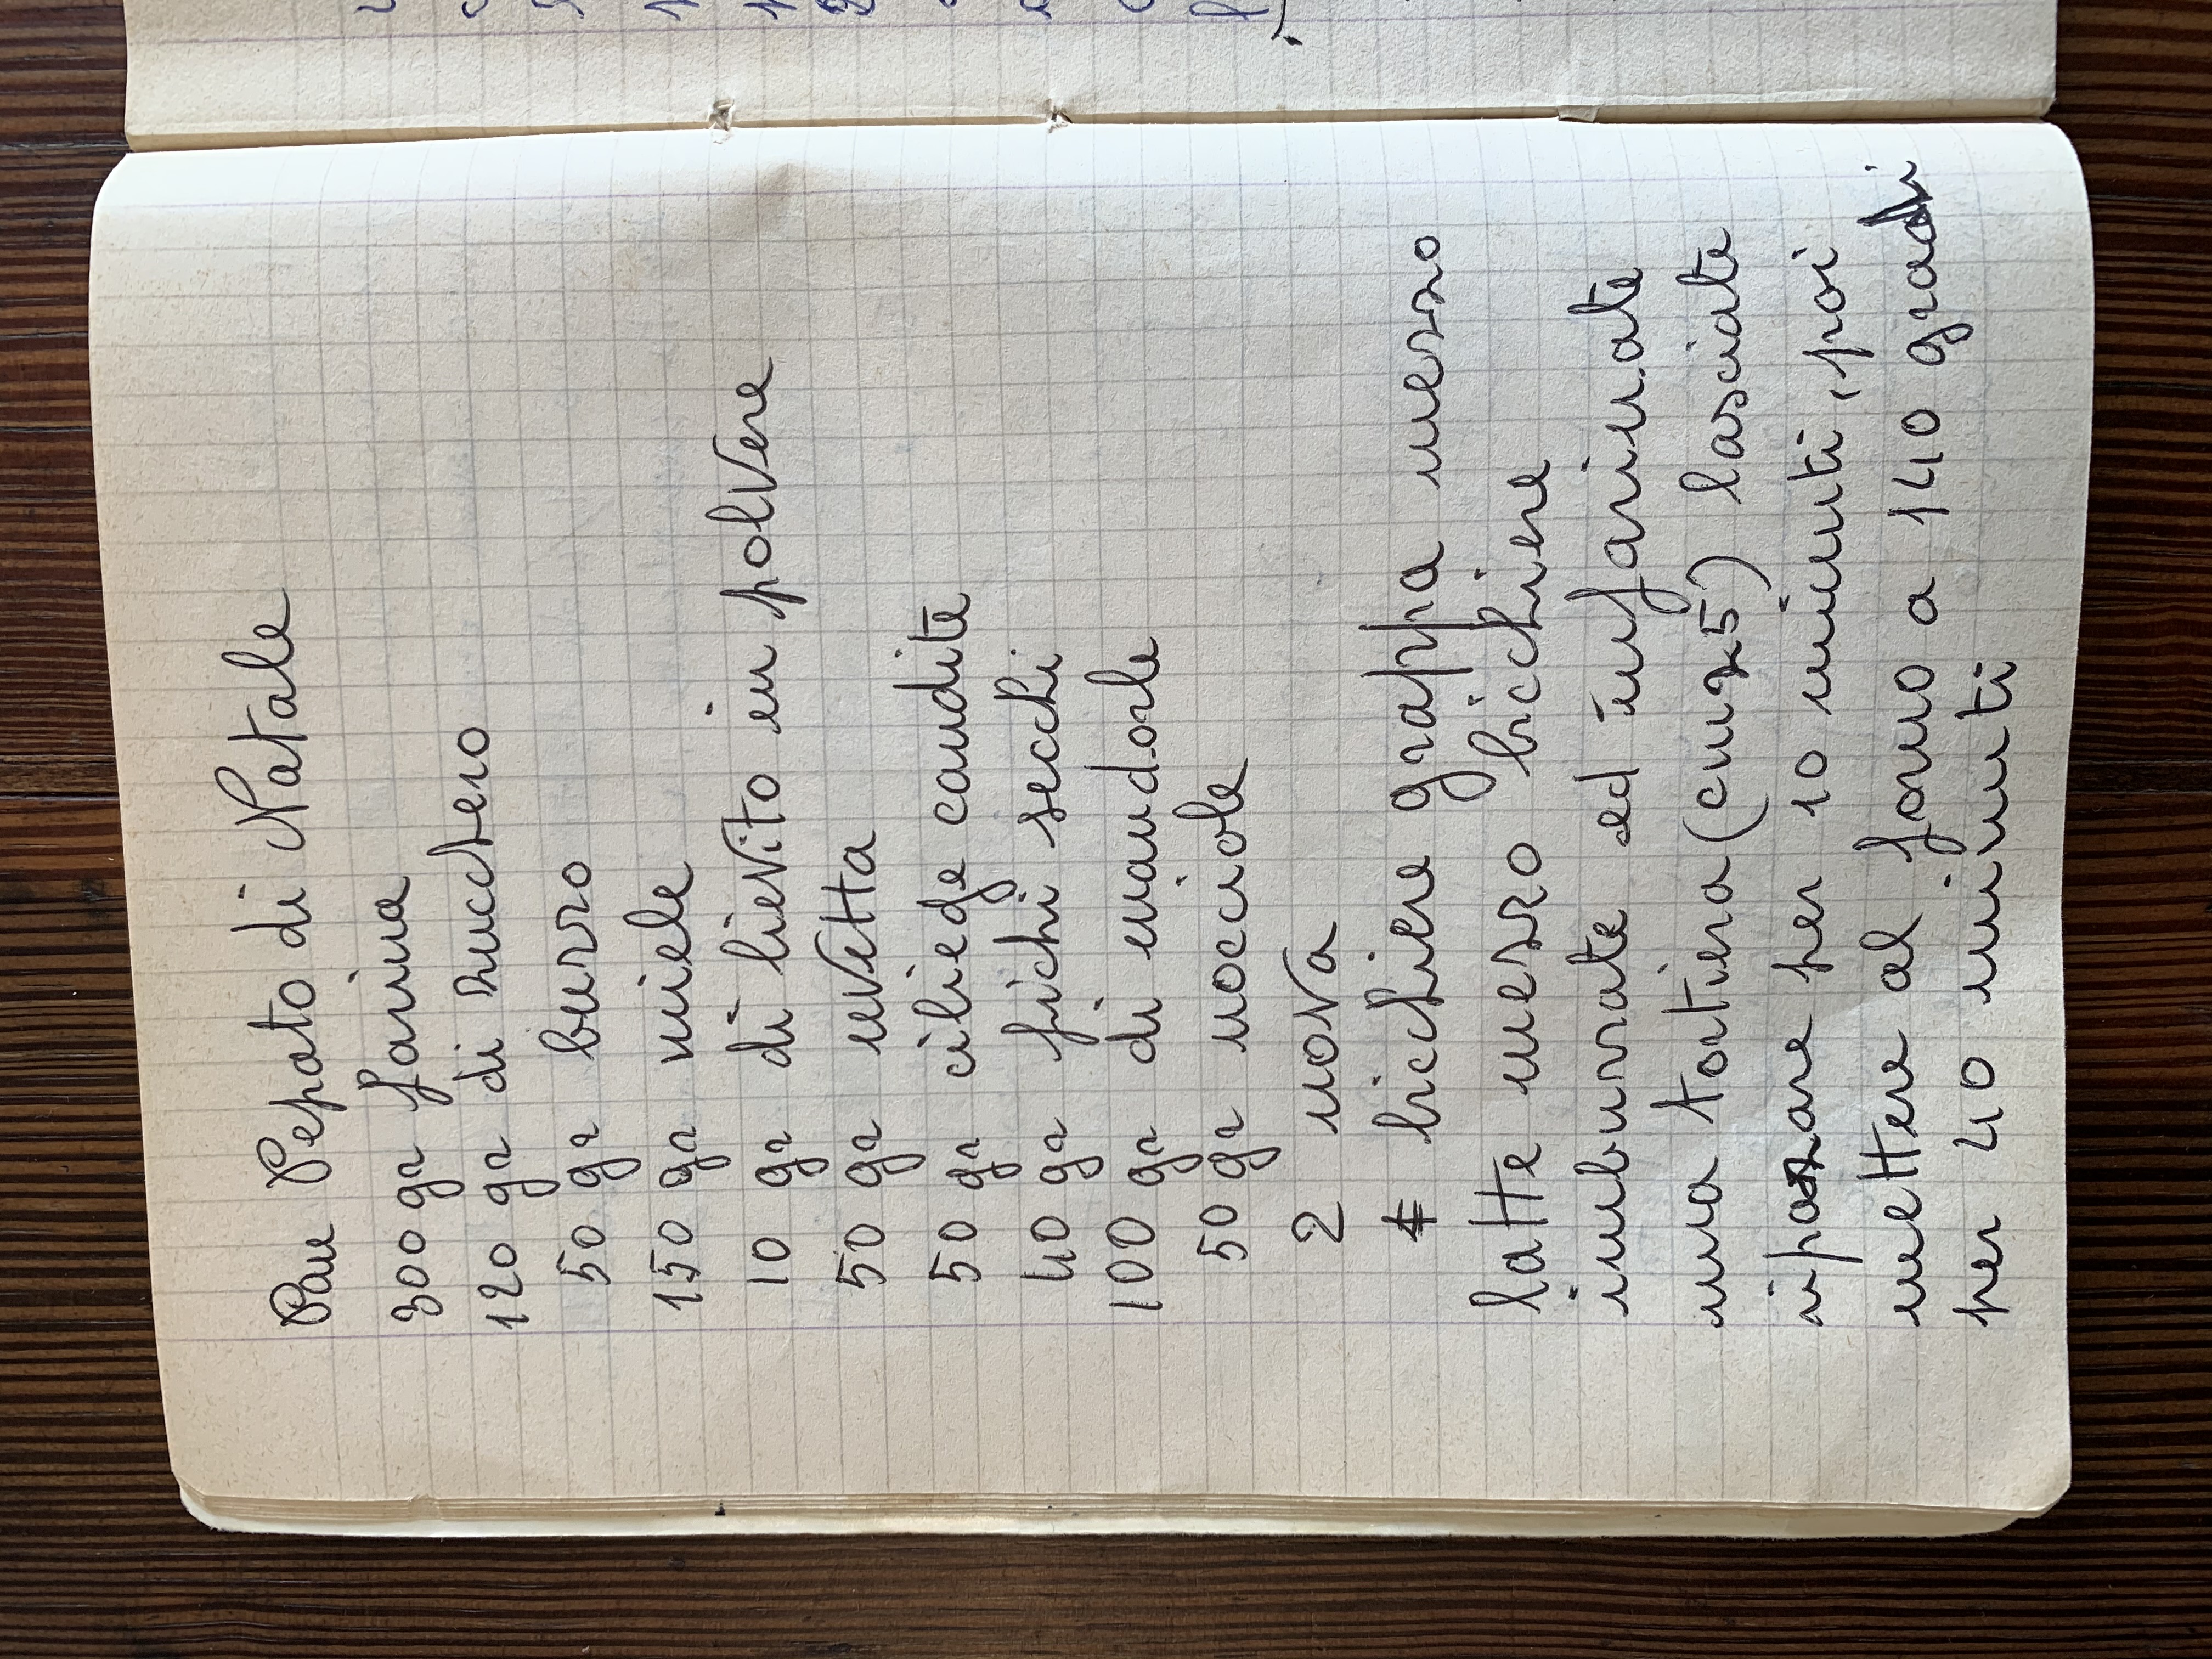 Pan Pepato di Natale
300 gr farina
120 gr di zucchero
50 gr burro
150 gr miele
10 gr di lievito in polvere
50 gr uvetta
50 gr ciliege candite
40 gr fichi secchi
100 gr di mandorle
50 gr nocciole
2 uova
bicchiere grappa mezzo
latte mezzo bicchiere
imburrate ed infarinate
una tortiera (cm 25) lasciate
riposare per 10 minuti, poi
mettere al forno a 140 gradi
per 40 minuti